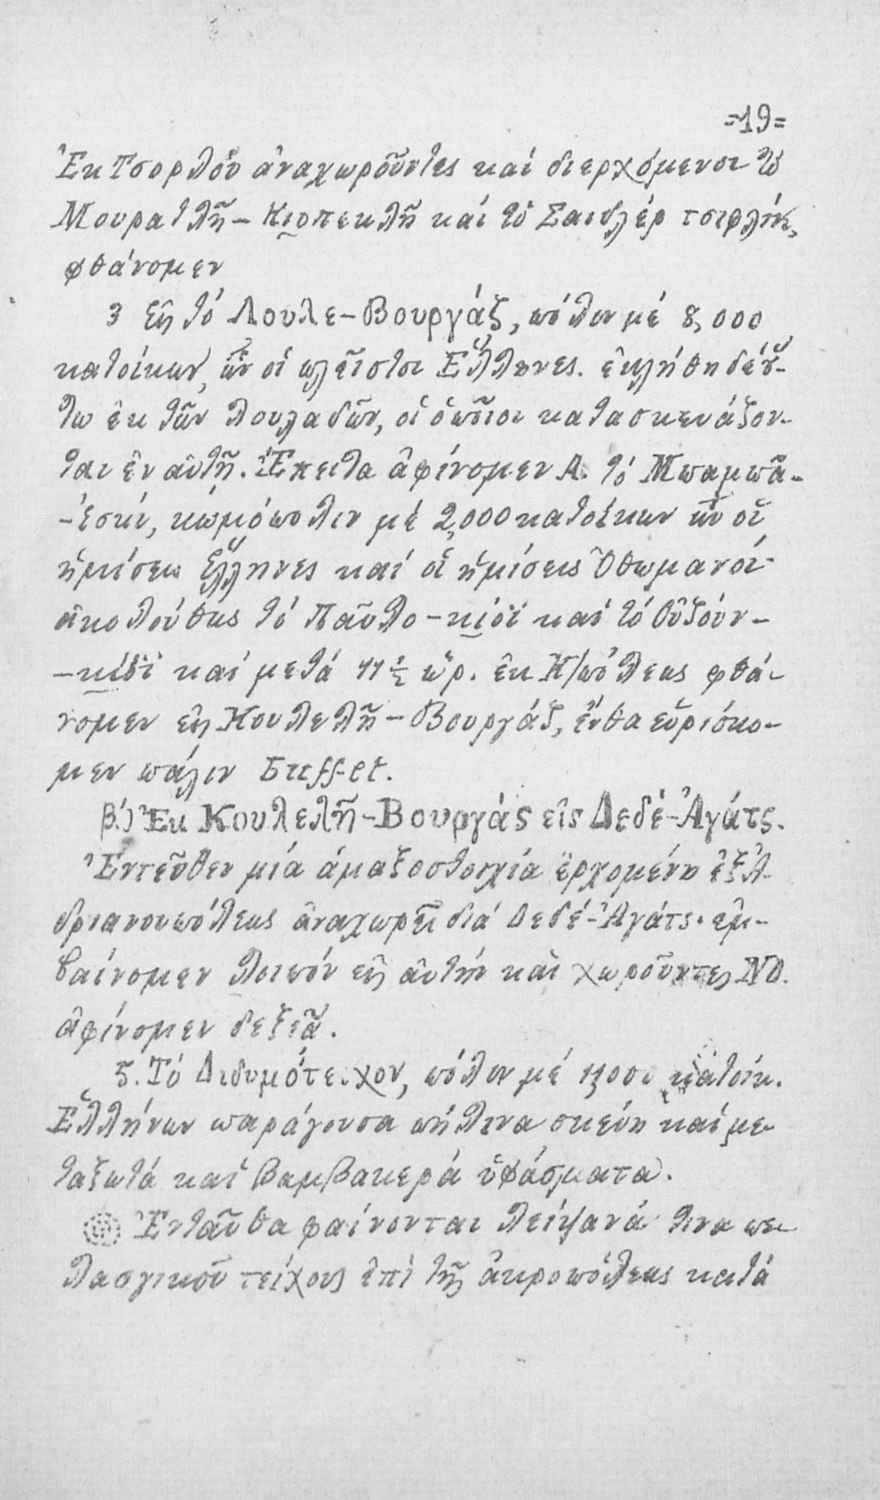 =19=
Ἐκ Τσορλοῦ ἀναχωροῦντες καί διερχόμενοι τό
Μουρατλῆ - Κιοπεκλῆ καί τό Σαιδλέρ τσιφλίκ,
φθάνομεν
3 Εἰς τό Λουλε-Βουργάζ, πόλιν μέ 8,000
κατοίκων, ὧν οἱ πλεῖστοι Ἕλληνες. ἐκλήθη δέ οὕ-
τω ἐκ τῶν λουλαδῶν, οἱ ὁποῖοι κατασκευάζον-
ται ἐν αὐτῇ. Ἔπειτα ἀφίνομεν Α. τό Μπαμπᾶ-
-ἐσκί, κωμόπολιν μέ 2,000 κατοίκων ὧν οἱ
ἡμίσεις Ἕλληνες καί οἱ ἡμίσεις Ὀθωμανοί·
ἀκολούθως τό Παῦλο-κιόϊ καί τό Οὐζούν-
-κιόϊ καί μετά 11 ½ ὥρ. ἐκ Κ/πόλεως φθά-
νομεν εἰς Κουλελῆ-Βουργάζ, ἔνθα εὑρίσκο-
μεν πάλιν Buffet.
β΄.) Ἐκ Κουλελῆ-Βουργάς εἰς Δεδέ-Ἀγάτς.
Ἐντεῦθεν μία ἁμαξοστοιχία ἐρχομένη ἐξ Ἀ-
δριανουπόλεως ἀναχωρεῖ διά Δεδέ-Ἀγάτς· ἐμ-
βαίνομεν λοιπόν εἰς αὐτήν καί χωροῦντες ΝΔ.
ἀφίνομεν δεξιᾷ.
5. Τό Διδυμότειχον, πόλιν μέ κατοίκ.
Ἑλλήνων παράγουσα πήλινα σκεύη καί με-
ταξωτά καί βαμβακερά ὑφάσματα.
Ἐνταῦθα φαίνονται λείψανά τινα πε-
λασγικοῦ τείχους ἐπί τῆς ἀκροπόλεως κατά